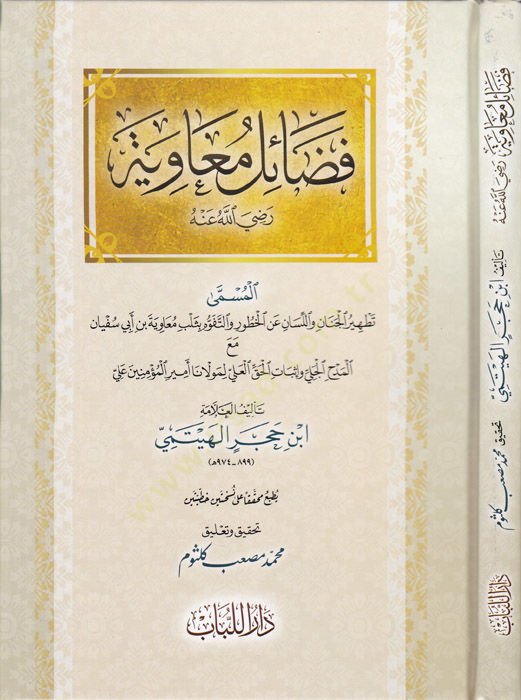 فَضَائِل مُعَاوِيَة
رَضِيَ اللَّهُ عَنْهُ
المُسَمَّى
تَطْهِيرُ الْجَنَانِ وَاللِّسَانِ عَنِ الْخُطُورِ وَالتَّفَوُّهِ بِثَلْبِ مُعَاوِيَةَ بْنِ أَبِي سُفْيَان
مَعَ
المَدْحِ الْجَلِيِّ وَإِثْبَاتِ الْحَقِّ الْعَلِيِّ لِمَوْلَانَا أَمِيرِ الْمُؤْمِنِينَ عَلِيّ
تَأليفُ العَلَّامَة
ابْنِ حَجَرٍ الهَيْتَمِيِّ
(٨٩٩ - ٩٧٤هـ)
يُطْبَعُ مُحَقَّقًا عَلَى نُسْخَتَيْنِ خَطِّيَّتَيْنِ
تحقيق وتعليق
محمد مصعب كلثوم
دَارُ اللُّبَاب
فَضَائِل مُعَاوِيَة رَضِيَ اللَّهُ عَنْهُ
تَأليف ابْنِ حَجَرٍ الهَيْتَمِيِّ
تحقيق محمد مصعب كلثوم
دَارُ اللُّبَاب